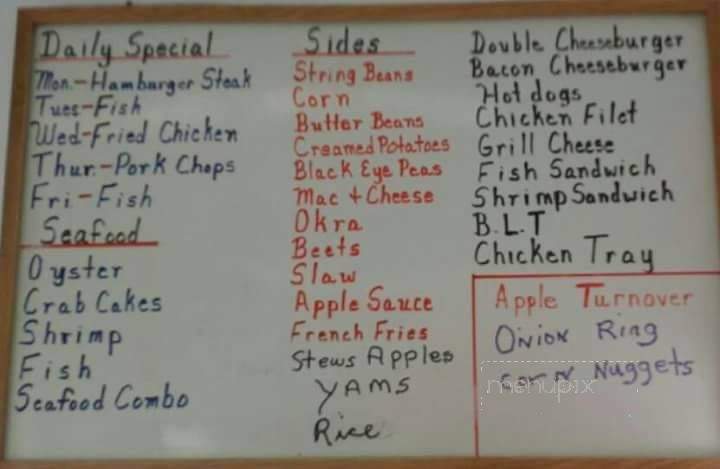 Daily Special
Mon.-Hamburger Steak
Tues-Fish
Wed-Fried Chicken
Thur.-Pork Chops
Fri-Fish
Seafood
Oyster
Crab Cakes
Shrimp
Fish
Seafood Combo
Sides
String Beans
Corn
Butter Beans
Creamed Potatoes
Black Eye Peas
Mac + Cheese
Okra
Beets
Slaw
Apple Sauce
French Fries
Stews Apples
YAMS
Rice
Double Cheeseburger
Bacon Cheeseburger
Hot dogs
Chicken Filet
Grill Cheese
Fish Sandwich
Shrimp Sandwich
B.L.T
Chicken Tray
Apple Turnover
Onion Ring
Corn Nuggets
menupix